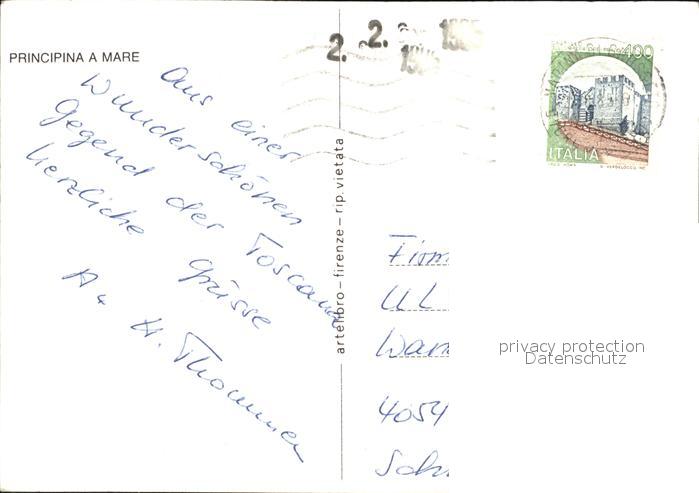 PRINCIPINA A MARE
Aus einer
wunderschönen
Gegend der Toscana
herzliche Grüsse
A + H. Thommen
artelibro – firenze – rip. vietata
2. 1985
2.
400
ITALIA
Firm
UL
4054
Sch
privacy protection
Datenschutz